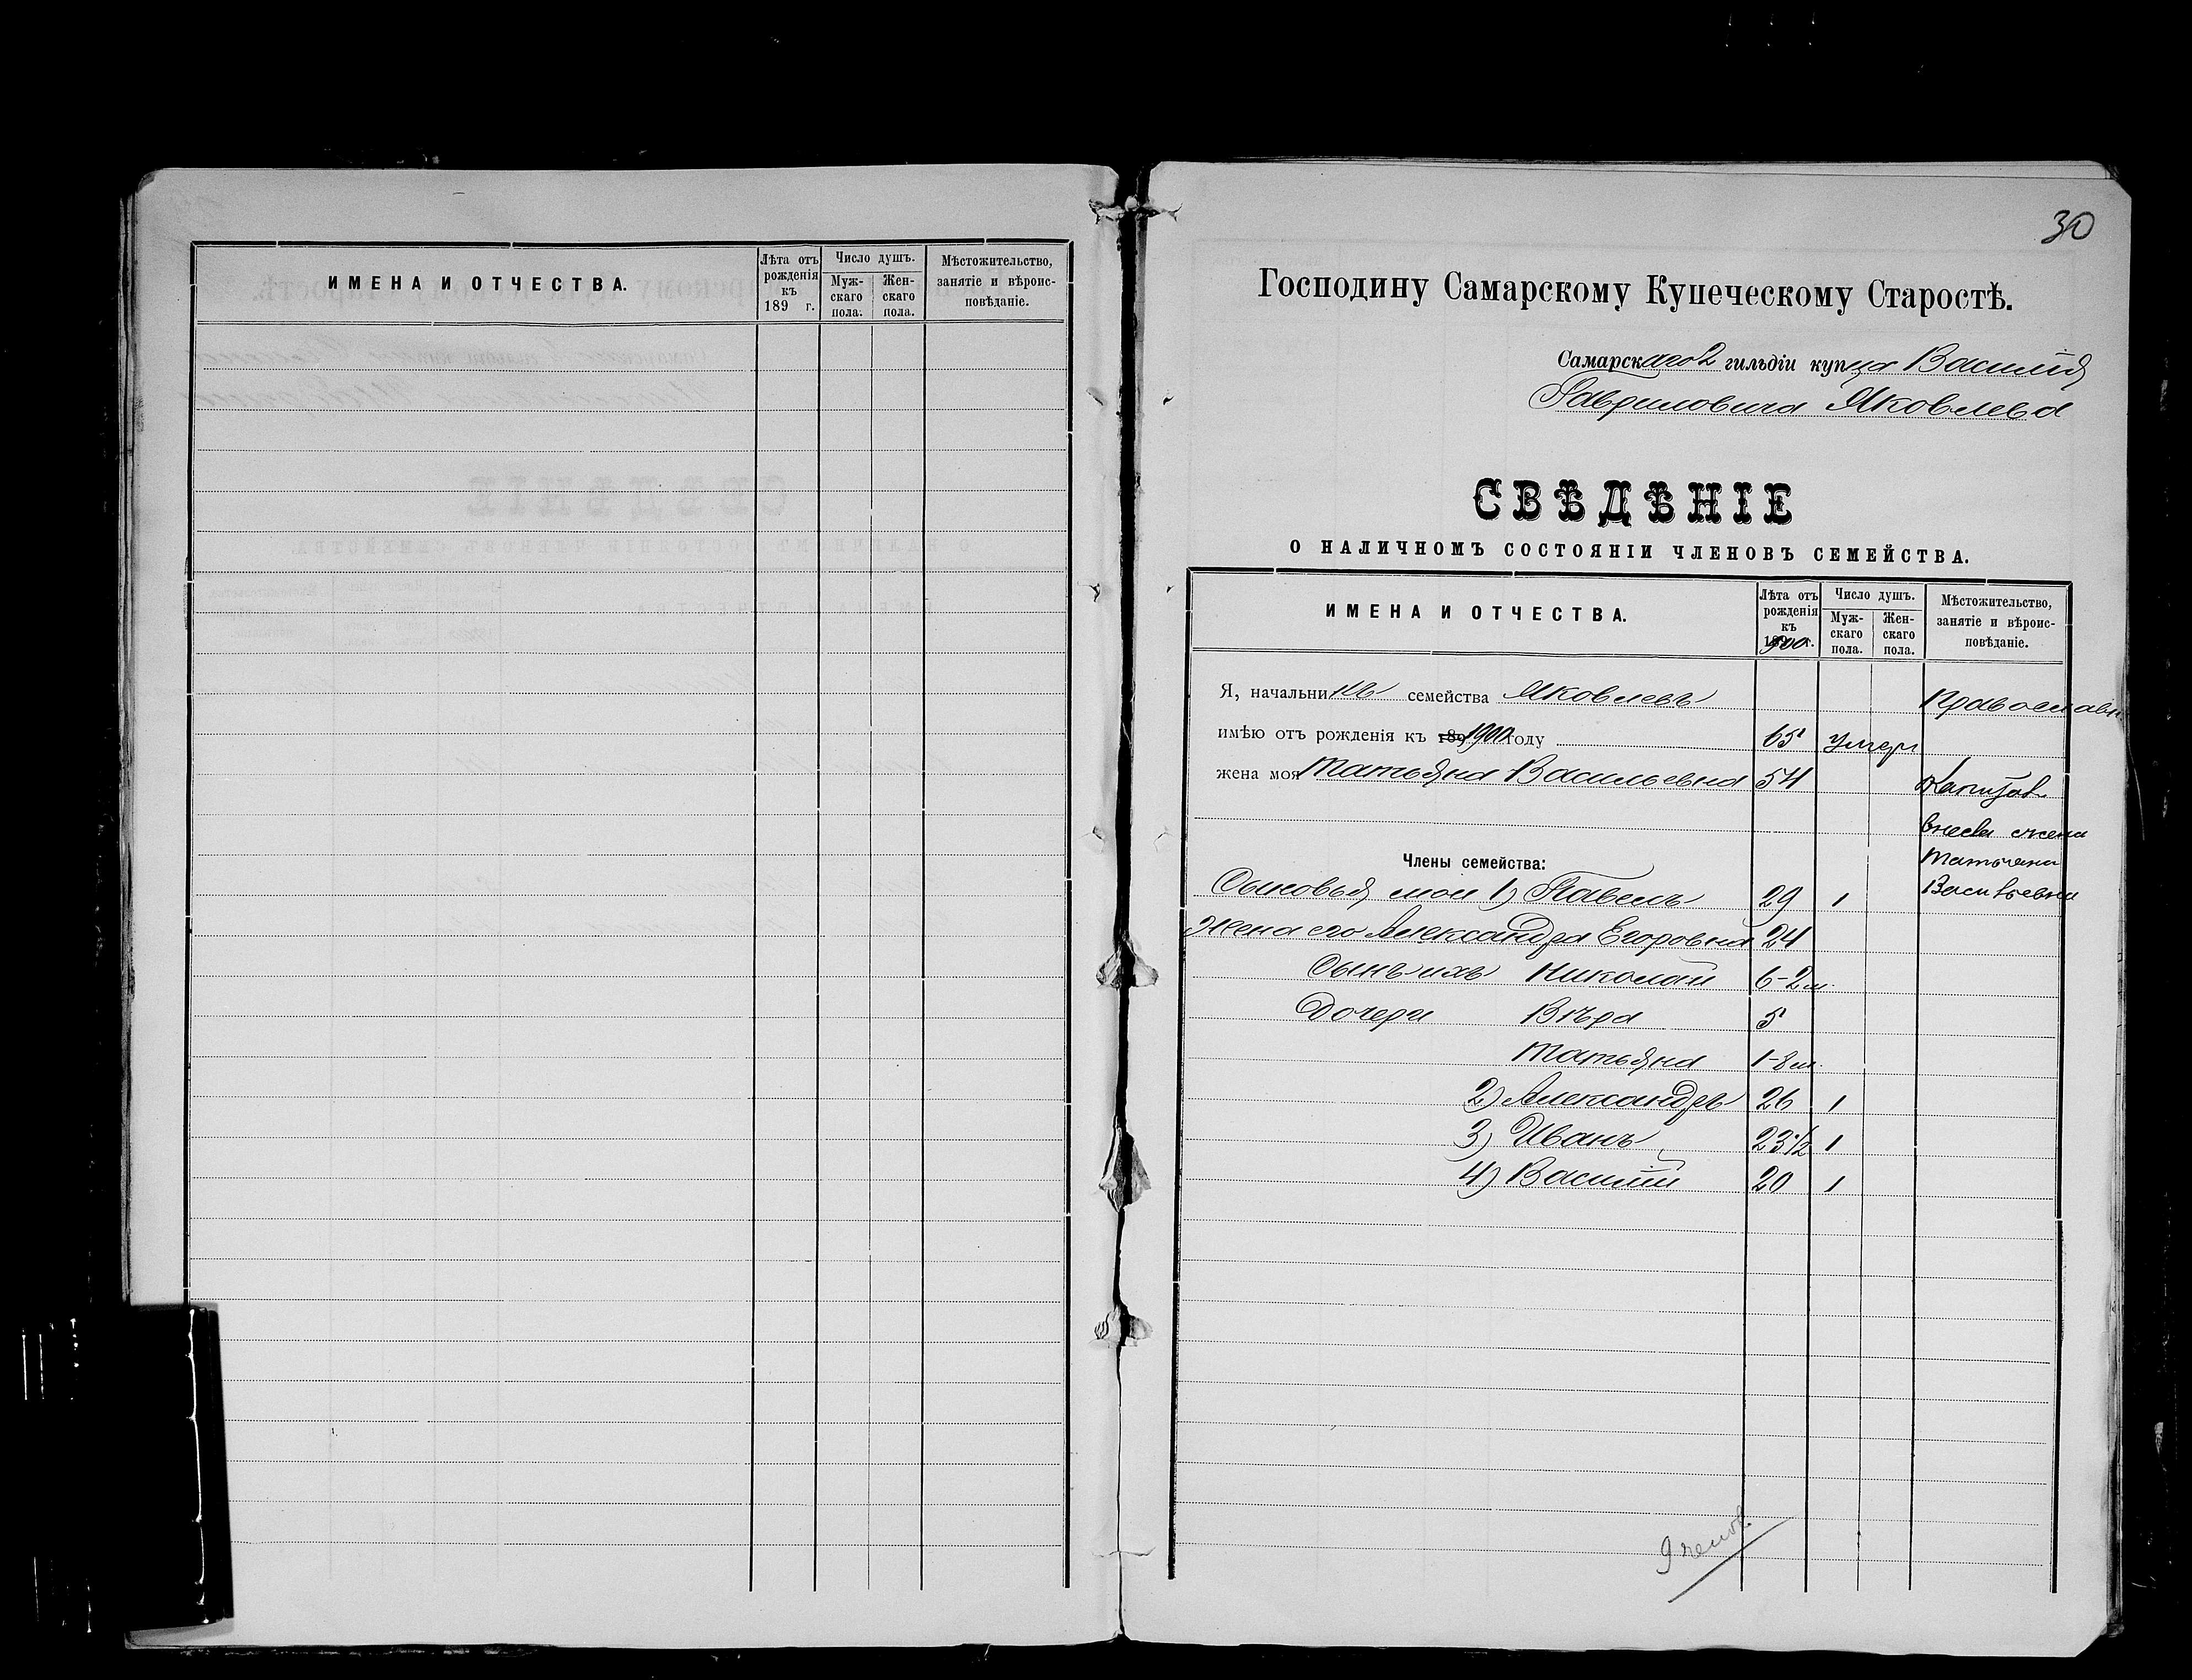 ИМЕНА И ОТЧЕСТВА.
Лѣта отъ рожденія къ 189 г.
Число душъ.
Муж-скаго пола.
Жен-скаго пола.
Мѣстожительство, занятіе и вѣроис-повѣданіе.
30
Господину Самарскому Купеческому Старостѣ.
Самарскаго 2 гильдіи купца Василія
Гавриловича Яковлева
СВѢДѢНІЕ
О НАЛИЧНОМЪ СОСТОЯНІИ ЧЛЕНОВЪ СЕМЕЙСТВА.
ИМЕНА И ОТЧЕСТВА.
Лѣта отъ рожденія къ 1900 г.
Число душъ.
Муж-скаго пола.
Жен-скаго пола.
Мѣстожительство, занятіе и вѣроис-повѣданіе.
Я, начальникъ семейства Яковлевъ Православн
имѣю отъ рожденія къ 1900 году 65 умеръ
жена моя Татьяна Васильевна 54
внесла жена
Татьяна
Васильевна
Члены семейства:
Сыновья мои 1) Павелъ 29 1
Жена его Александра Егоровна 24
Сынъ ихъ Николай 6-2 м.
Дочери Вѣра 5
Татьяна 1-8 м.
2) Александръ 26 1
3) Иванъ 23 1/2 1
4) Василій 20 1
9 челов